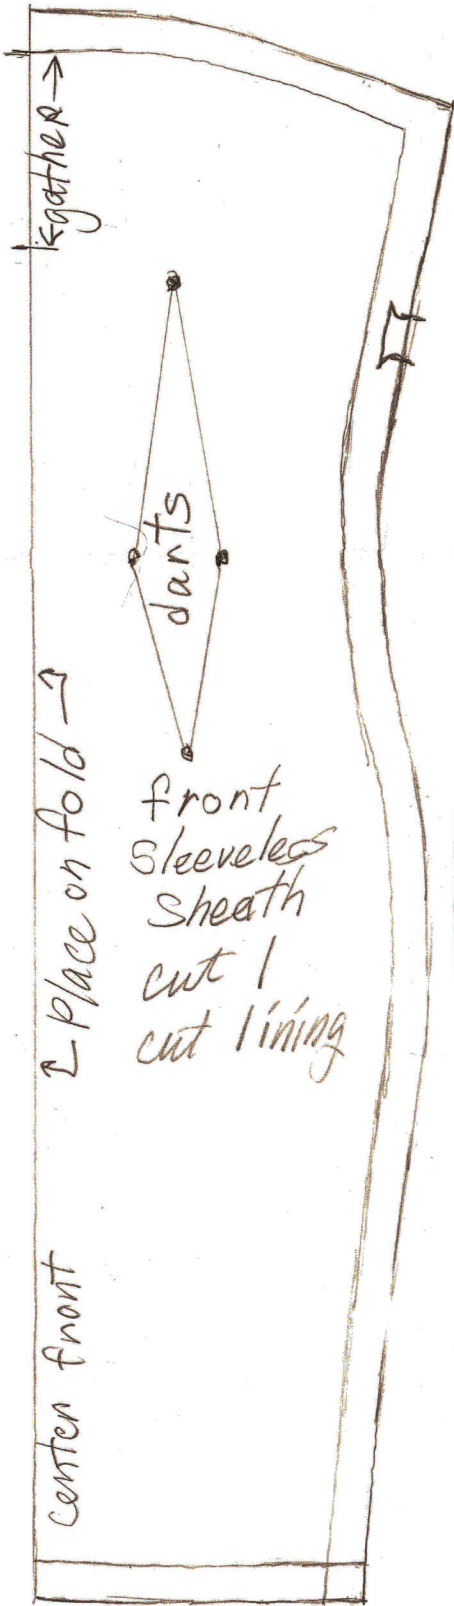 gather
darts
Place on fold
front
Sleeveless
Sheath
cut 1
cut lining
center front